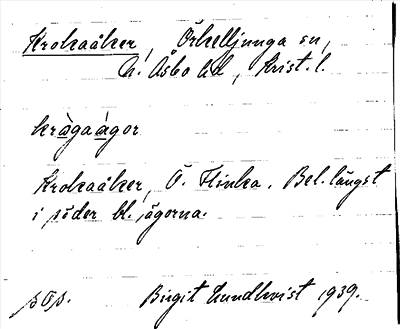 Krokaåker, Örkelljunga sn,
N. Åsbo hd, Krist. l.
kràgaágor
Krokaåker, Ö. Flinka. Bel. längst
i söder bl. ägorna.
pÖp. Birgit Lundkvist 1939.